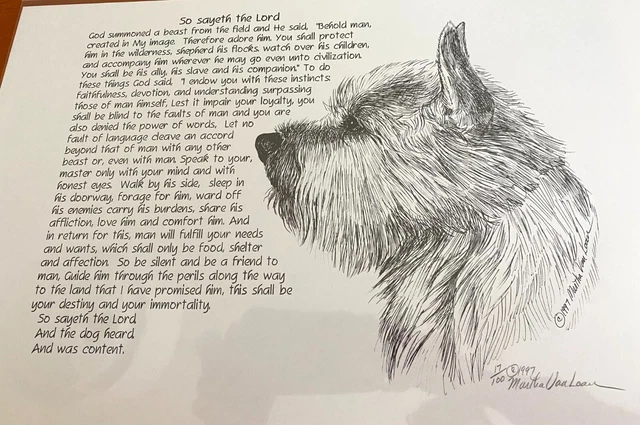 So sayeth the Lord
God summoned a beast from the field and He said, "Behold man,
created in My image. Therefore adore him. You shall protect
him in the wilderness, shepherd his flocks, watch over his children,
and accompany him wherever he may go even unto civilization.
You shall be his ally, his slave and his companion." To do
these things God said, "I endow you with these instincts:
faithfulness, devotion, and understanding surpassing
those of man himself. Lest it impair your loyalty, you
shall be blind to the faults of man and you are
also denied the power of words, Let no
fault of language cleave an accord
beyond that of man with any other
beast or, even with man. Speak to your,
master only with your mind and with
honest eyes. Walk by his side, sleep in
his doorway, forage for him, ward off
his enemies carry his burdens, share his
affliction, love him and comfort him. And
in return for this, man will fulfill your needs
and wants, which shall only be food, shelter
and affection. So be silent and be a friend to
man. Guide him through the perils along the way
to the land that I have promised him, this shall be
your destiny and your immortality.
So sayeth the Lord.
And the dog heard.
And was content.
©1997 Martha Van Loan
17/100 ©1997
Martha Van Loan